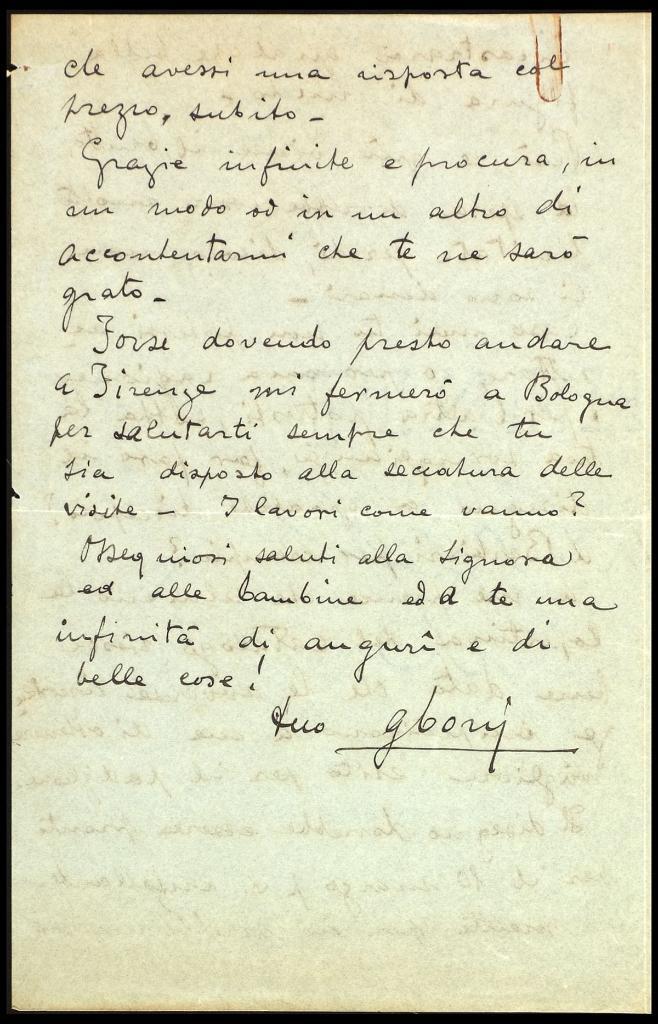 che avessi una risposta col
prezzo, subito –
Grazie infinite e procura, in
un modo od in un altro di
accontentarmi che te ne sarò
grato –
Forse dovendo presto andare
a Firenze mi fermerò a Bologna
per salutarti sempre che tu
sia disposto alla seccatura delle
visite – I lavori come vanno?
Ossequiosi saluti alla Signora
ed alle bambine ed a te una
infinità di augurî e di
belle cose!
tuo